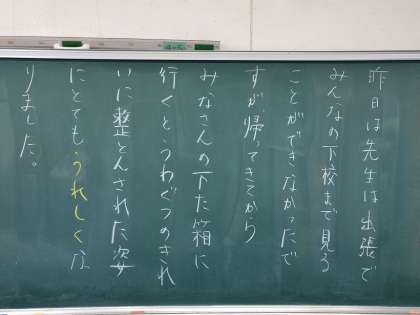 昨日は先生は出張で
みんなの下校まで見る
ことができなかったで
すが、帰ってきてから
みなさんの下た箱に
行くと、うわぐつのきれ
いに整とんされた姿
にとてもうれしくな
りました。